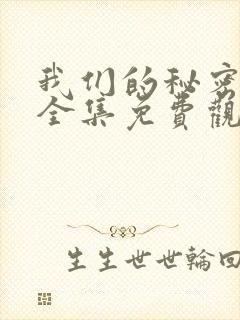 我们的秘密
全集免費觀
生生世世輪回